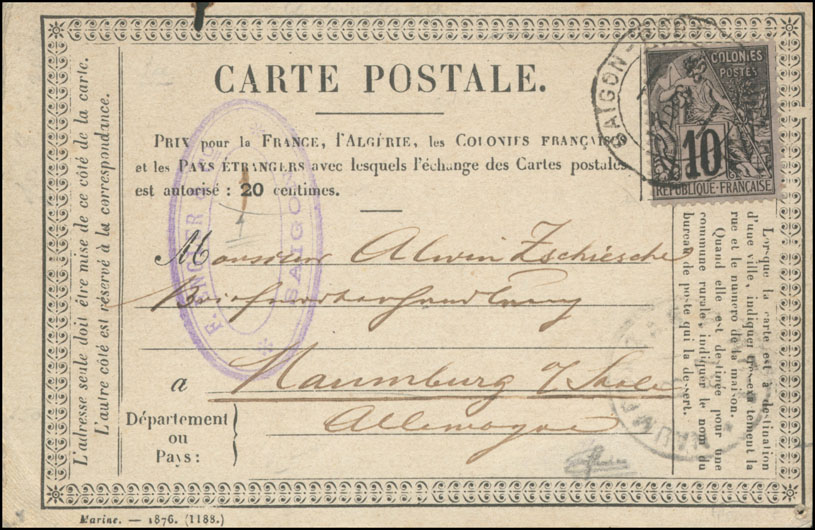 CARTE POSTALE.
PRIX pour la FRANCE, l'ALGÉRIE, les COLONIES FRANÇAISES
et les PAYS ÉTRANGERS avec lesquels l'échange des Cartes postales
est autorisé : 20 centimes.
Monsieur Alwin Zschiesche
Briefmarkenhandlung
a Naumburg a/Saale
Allemagne
Département
ou
Pays :
L'adresse seule doit être mise de ce côté de la carte.
L'autre côté est réservé à la correspondance.
Lorsque la carte est à destination
d'une ville, indiquer très exactement la
rue et le numéro de la maison.
Quand elle est destinée pour une
commune rurale, indiquer le nom du
bureau de poste qui la dessert.
COLONIES
POSTES
10
RÉPUBLIQUE FRANÇAISE
SAIGON
SAIGON
NAUM
Marine. — 1876. (1188.)